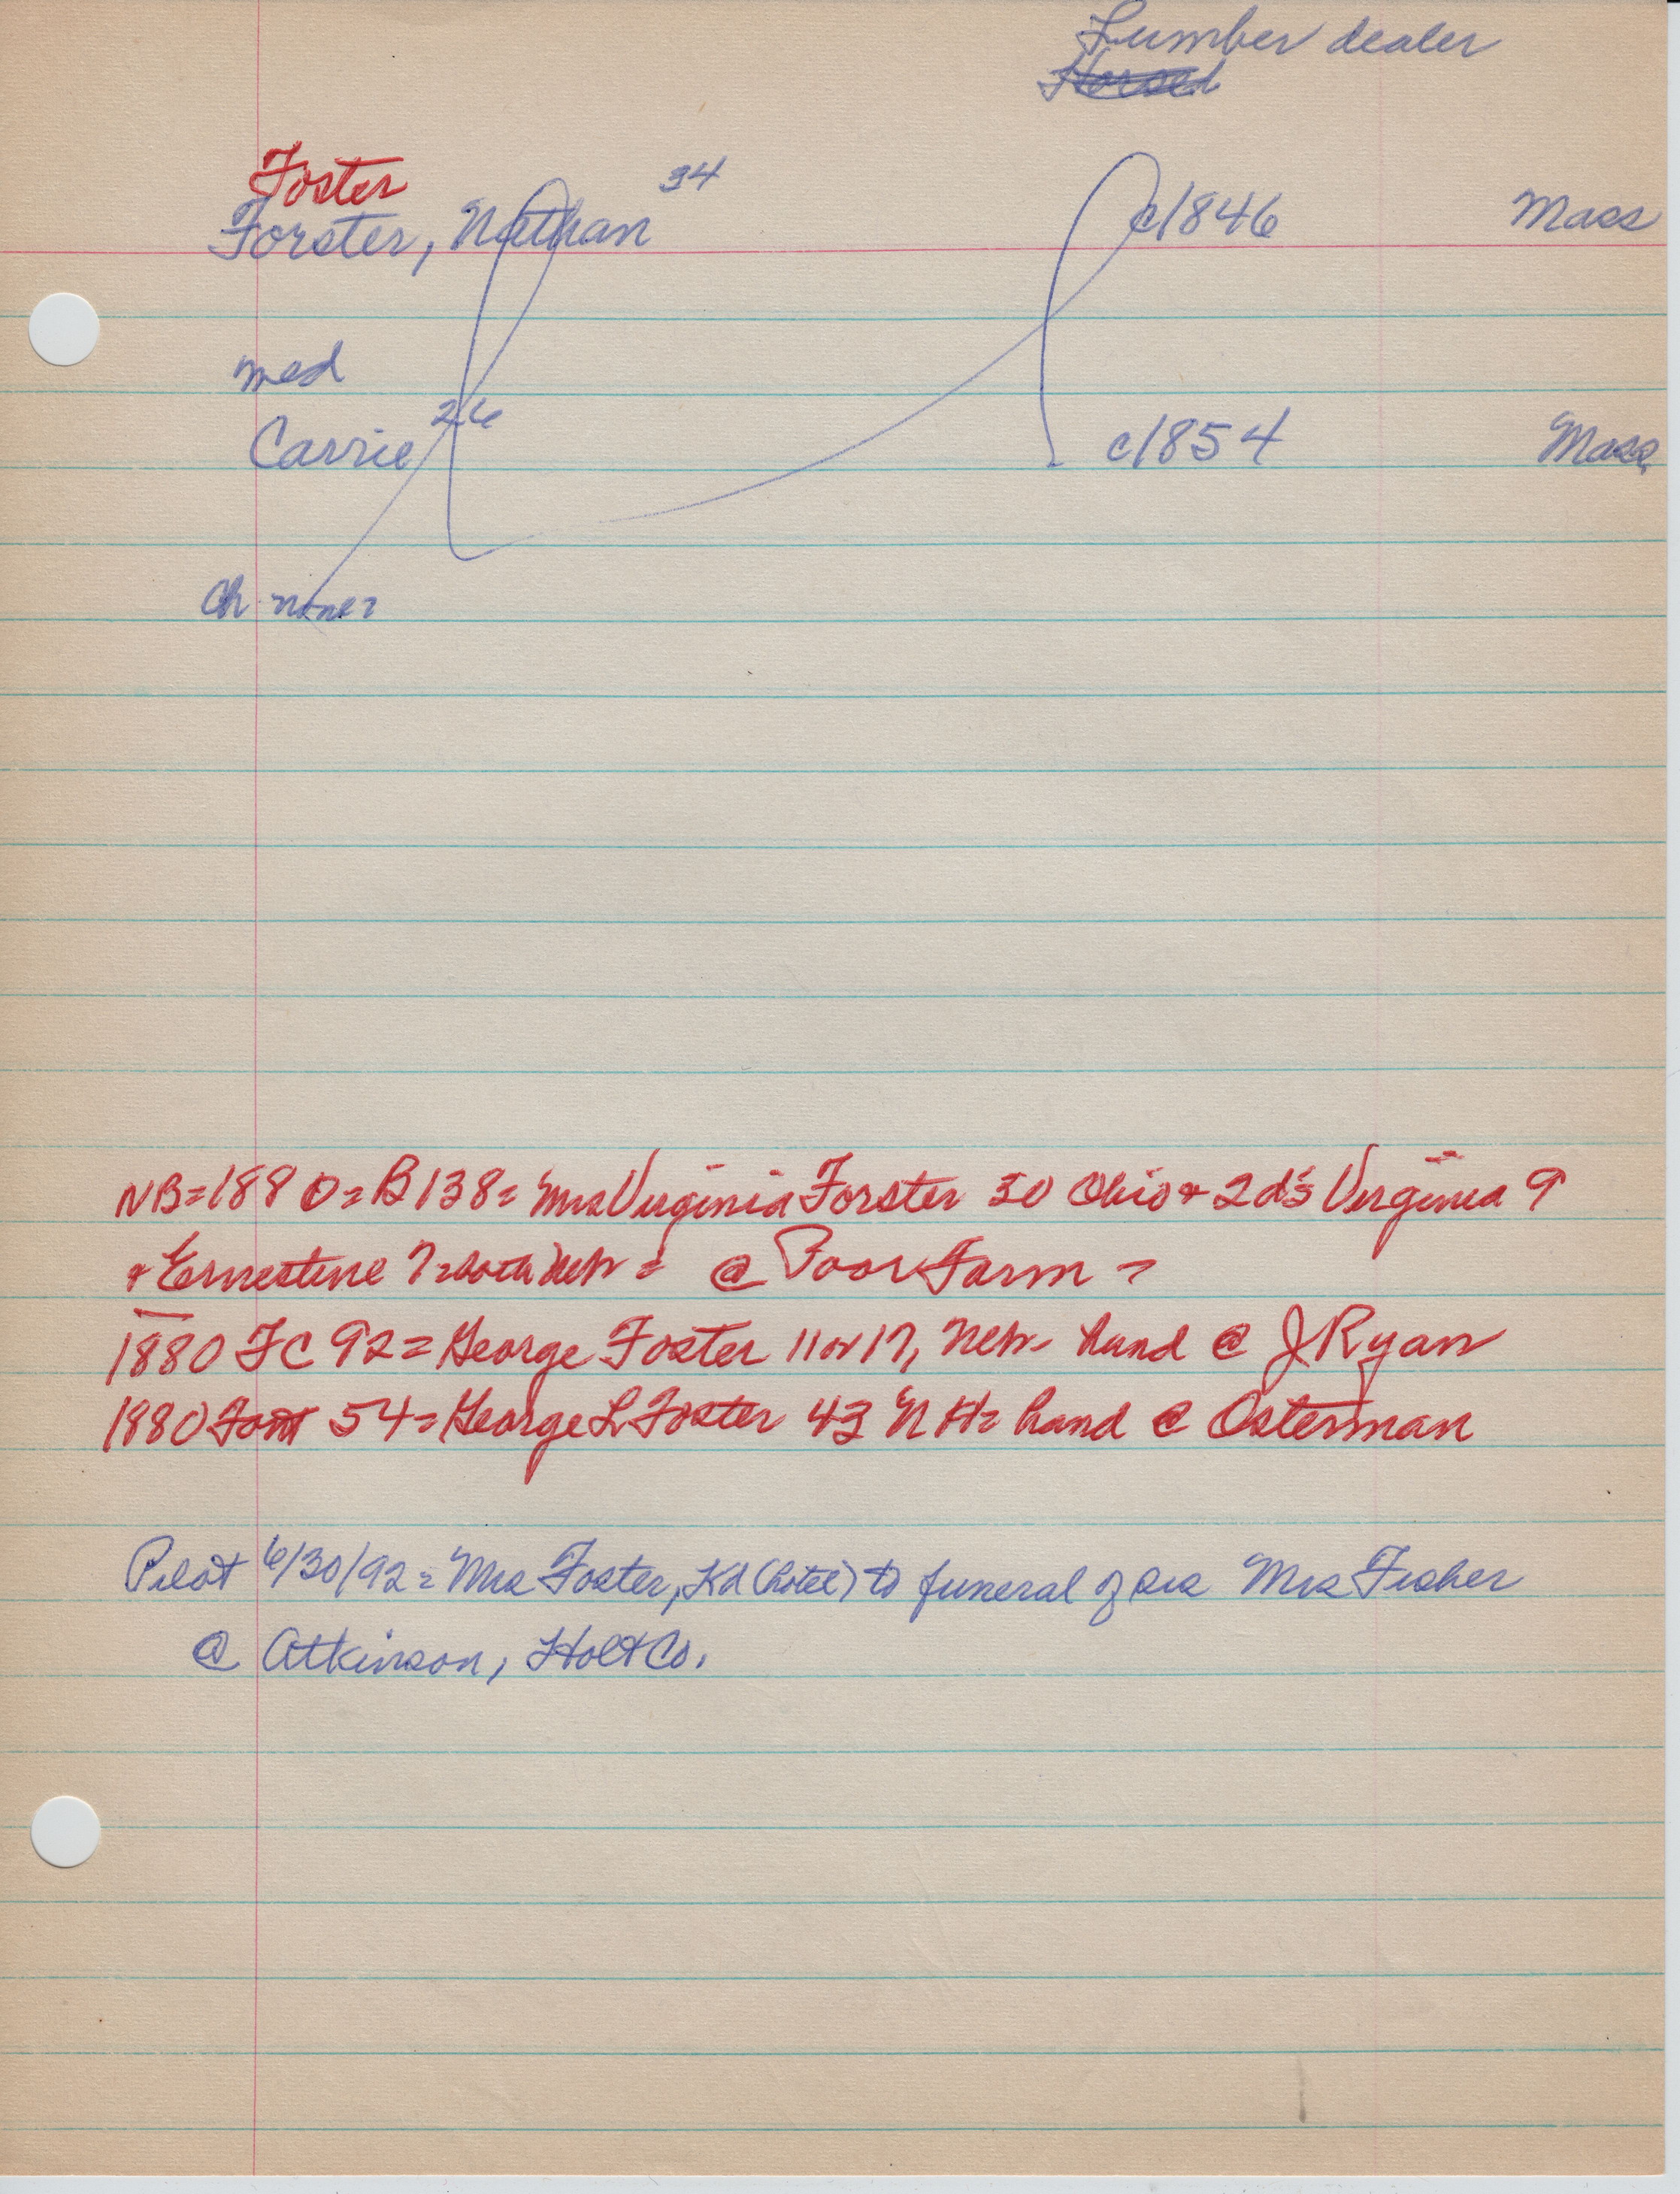 Lumber dealer
Foster
Forster, Nathan 34 c1846 Mass
med
Carrie 26 c1854 Mass.
Ch none?
NB=1880=B138= Mrs Virginia Forster 30 Ohio + 2 d's Virginia 9
+ Ernestine 7=both Neb = @ Poor Farm =
1880 FC 92= George Foster 11 or 17, Neb- hand @ J Ryan
1880 54= George L Foster 43 NH= hand @ Osterman
Pilot 6/30/92= Mrs Foster, Kd (hotel) to funeral of sis Mrs Fisher
@ Atkinson, Holt Co.